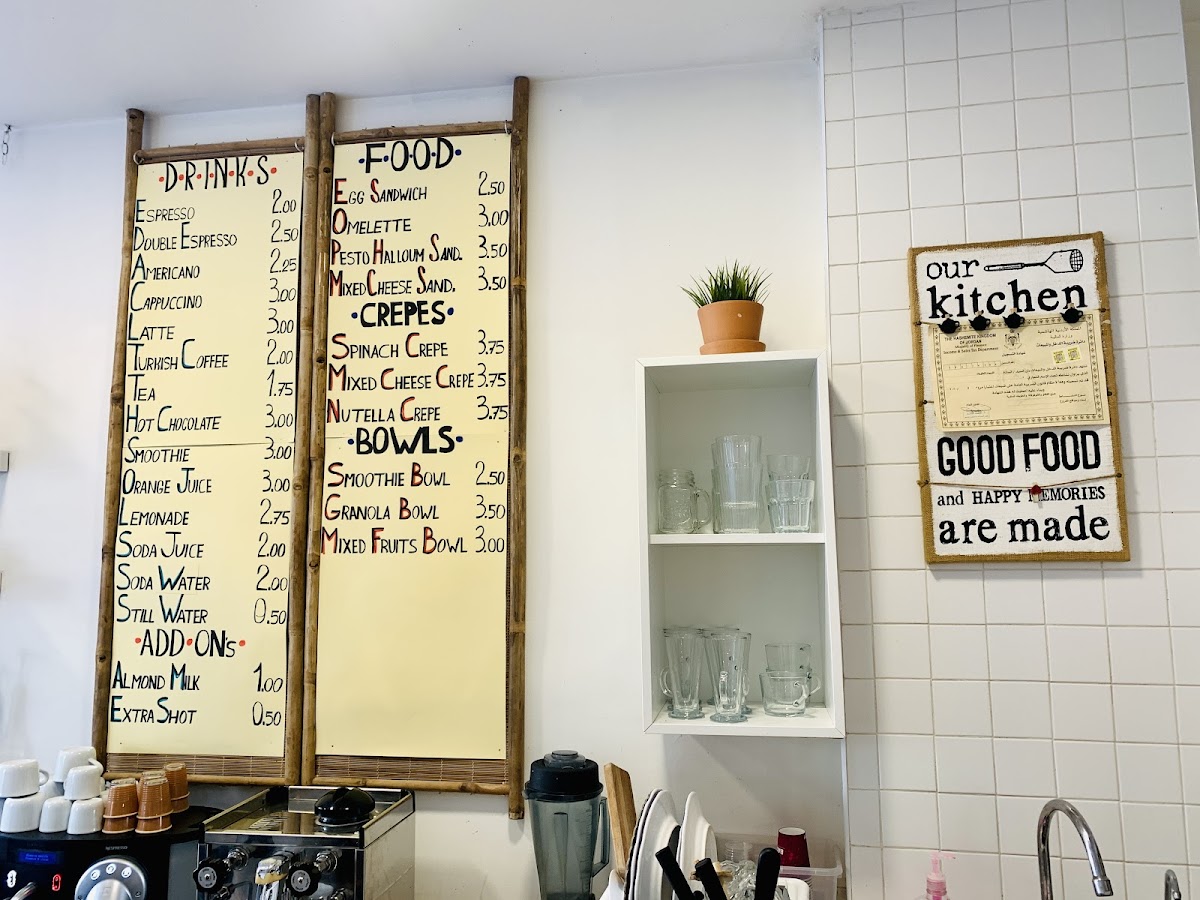 ·D·R·I·N·K·S·
ESPRESSO 2.00
DOUBLE ESPRESSO 2.50
AMERICANO 2.25
CAPPUCCINO 3.00
LATTE 3.00
TURKISH COFFEE 2.00
TEA 1.75
HOT CHOCOLATE 3.00
SMOOTHIE 3.00
ORANGE JUICE 3.00
LEMONADE 2.75
SODA JUICE 2.00
SODA WATER 2.00
STILL WATER 0.50
·ADD·ON's·
ALMOND MILK 1.00
EXTRA SHOT 0.50
·F·O·O·D·
EGG SANDWICH 2.50
OMELETTE 3.00
PESTO HALLOUM SAND. 3.50
MIXED CHEESE SAND. 3.50
·CREPES·
SPINACH CREPE 3.75
MIXED CHEESE CREPE 3.75
NUTELLA CREPE 3.75
·BOWLS·
SMOOTHIE BOWL 2.50
GRANOLA BOWL 3.50
MIXED FRUITS BOWL 3.00
our
kitchen
THE HASHEMITE KINGDOM
OF JORDAN
Ministry of Finance
Income & Sales Tax Department
المملكة الأردنية الهاشمية
وزارة المالية
دائرة ضريبة الدخل والمبيعات
شهادة التسجيل
GOOD FOOD
and HAPPY MEMORIES
are made
NESPRESSO